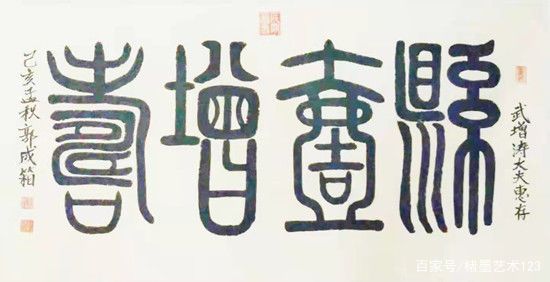 武增涛大夫惠存
縣壺增壽
己亥孟秋郭成箱
百家号/墨艺术123